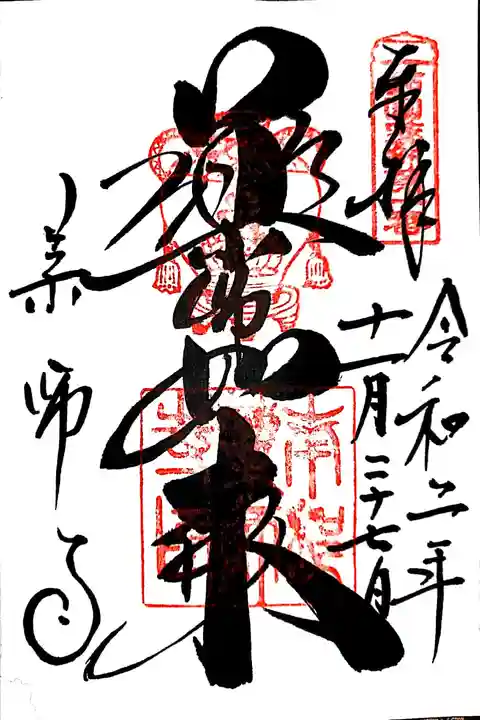 奉拝
令和二年
十一月二十七日
薬師如来
薬師寺